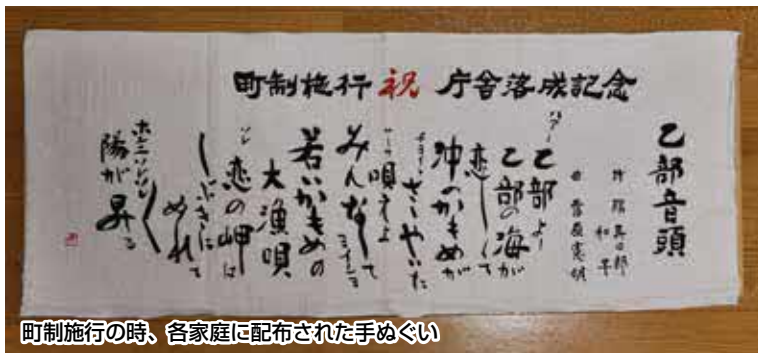 町制施行 祝 庁舎落成記念
乙部音頭
ハアー乙部よー
乙部の海が
恋しくて
沖のかもめが
さゝやいた
唄えよ
みんなして
若いかもめの
大漁唄
ソレ 恋の岬は
しぶきに
ぬれて
陽が昇る
町制施行の時、各家庭に配布された手ぬぐい